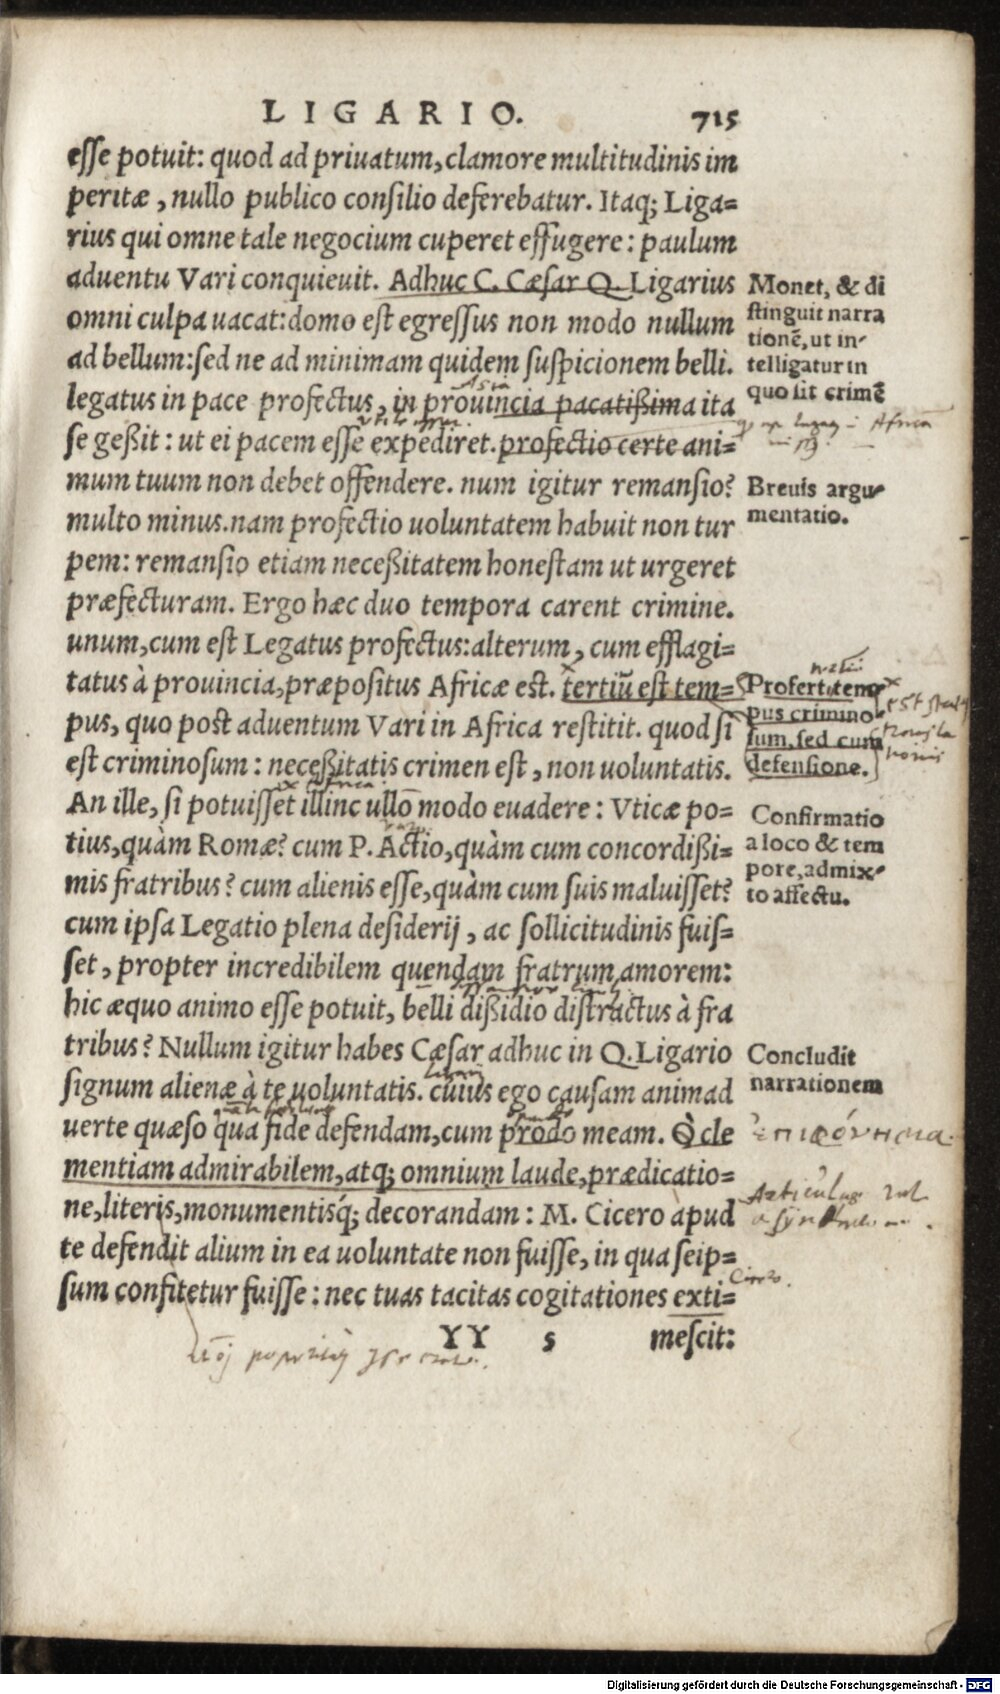 LIGARIO. 715
esse potuit: quod ad priuatum, clamore multitudinis im
peritæ, nullo publico consilio deferebatur. Itaq; Liga=
rius qui omne tale negocium cuperet effugere: paulum
aduentu Vari conquieuit. Adhuc C. Cæsar Q. Ligarius
omni culpa uacat: domo est egressus non modo nullum
ad bellum: sed ne ad minimam quidem suspicionem belli.
legatus in pace profectus, in prouincia pacatißima ita
se geßit: ut ei pacem esse expediret. profectio certe ani=
mum tuum non debet offendere. num igitur remansio?
multo minus. nam profectio uoluntatem habuit non tur
pem: remansio etiam neceßitatem honestam ut urgeret
præfecturam. Ergo hæc duo tempora carent crimine.
unum, cum est Legatus profectus: alterum, cum efflagi=
tatus à prouincia, præpositus Africæ est. tertiũ est tem=
pus, quo post aduentum Vari in Africa restitit. quod si
est criminosum: neceßitatis crimen est, non uoluntatis.
An ille, si potuisset illinc ullo modo euadere: Vticæ po=
tius, quàm Romæ? cum P. Actio, quàm cum concordißi=
mis fratribus? cum alienis esse, quàm cum suis maluisset?
cum ipsa Legatio plena desiderij, ac sollicitudinis fuis=
set, propter incredibilem quendam fratrum amorem:
hic æquo animo esse potuit, belli dißidio distractus à fra
tribus? Nullum igitur habes Cæsar adhuc in Q. Ligario
signum alienæ à te uoluntatis. cuius ego causam animad
uerte quæso qua fide defendam, cum prodo meam. O cle
mentiam admirabilem, atq; omnium laude, prædicatio=
ne, literis, monumentisq́; decorandam: M. Cicero apud
te defendit alium in ea uoluntate non fuisse, in qua seip=
sum confitetur fuisse: nec tuas tacitas cogitationes exti=
YY 5 mescit:
Monet, & di
stinguit narra
tionẽ, ut in-
telligatur in
quo sit crimẽ
Africa
Breuis argu-
mentatio.
Profert tem
pus crimino-
sum, sed cum
defensione.
Confirmatio
a loco & tem
pore, admix-
to affectu.
Concludit
narrationem
ἐπιφώνημα.
Cicero.
Digitalisierung gefördert durch die Deutsche Forschungsgemeinschaft - DFG